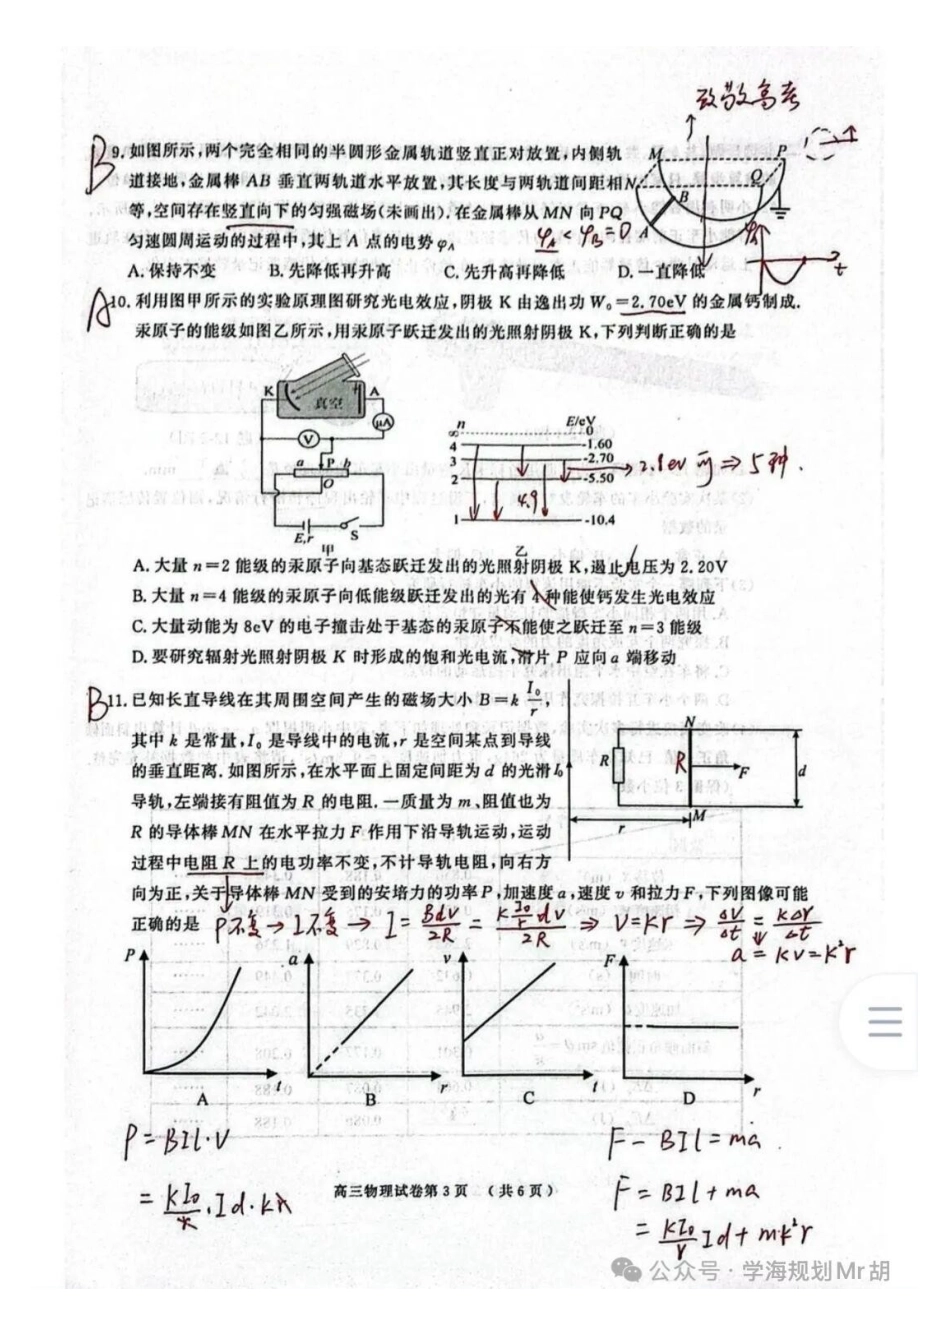 致敬高考
B 9. 如图所示,两个完全相同的半圆形金属轨道竖直正对放置,内侧轨
道接地,金属棒 AB 垂直两轨道水平放置,其长度与两轨道间距相
等,空间存在竖直向下的匀强磁场(未画出). 在金属棒从 MN 向 PQ
匀速圆周运动的过程中,其上 A 点的电势 φA
φA < φB = 0
M P
N Q
B
φA
t
A. 保持不变 B. 先降低再升高 C. 先升高再降低 D. 一直降低
A 10. 利用图甲所示的实验原理图研究光电效应,阴极 K 由逸出功 W0=2.70eV 的金属钙制成.
汞原子的能级如图乙所示,用汞原子跃迁发出的光照射阴极 K,下列判断正确的是
K 真空 A
μA
V
a P b
O
E,r S
甲
n E/eV
∞ 0
4 -1.60
3 -2.70
2 -5.50
1 -10.4
乙
4.9
→ 2.8eV 可 ⇒ 5种.
A. 大量 n=2 能级的汞原子向基态跃迁发出的光照射阴极 K,遏止电压为 2.20V
B. 大量 n=4 能级的汞原子向低能级跃迁发出的光有 4 种能使钙发生光电效应
C. 大量动能为 8eV 的电子撞击处于基态的汞原子不能使之跃迁至 n=3 能级
D. 要研究辐射光照射阴极 K 时形成的饱和光电流,滑片 P 应向 a 端移动
B 11. 已知长直导线在其周围空间产生的磁场大小 B=k I0/r,
其中 k 是常量,I0 是导线中的电流,r 是空间某点到导线
的垂直距离. 如图所示,在水平面上固定间距为 d 的光滑
导轨,左端接有阻值为 R 的电阻. 一质量为 m、阻值也为
R 的导体棒 MN 在水平拉力 F 作用下沿导轨运动,运动
过程中电阻 R 上的电功率不变,不计导轨电阻,向右方
向为正,关于导体棒 MN 受到的安培力的功率 P,加速度 a,速度 v 和拉力 F,下列图像可能
正确的是
I0 R N R F d
r M
P不变 → I不变 → I = Bdv/2R = k I0/r dv/2R ⇒ v=kr ⇒ Δv/Δt = kΔr/Δt
a = kv = k²r
P t A
a r B
v t C
F r D
P = BIl·v
= kI0/r · Id · kr
F - BIl = ma
F = BIl + ma
= kI0/r Id + mk²r
高三物理试卷第 3 页 (共 6 页)
公众号 · 学海规划Mr胡